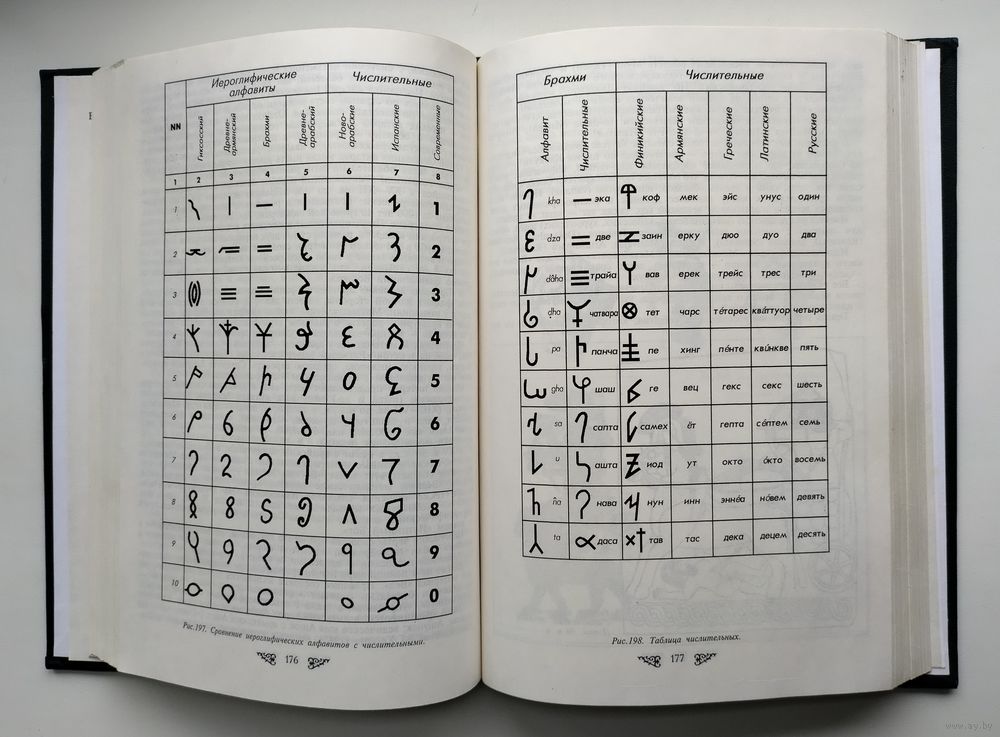 Иероглифические алфавиты Числительные
NN Гиксосский Древне-армянский Брахми Древне-арабский Ново-арабские Испанские Современные
1 2 3 4 5 6 7 8
1 1
2 2
3 3
4 4
5 5
6 6
7 7
8 8
9 9
10 0
Рис.197. Сравнение иероглифических алфавитов с числительными.
176
Брахми Числительные
Алфавит Числительные Финикийские Армянские Греческие Латинские Русские
kha эка коф мек эйс унус один
dza две заин ерку дюо дуо два
dâha трайа вав ерек трейс трес три
ḍha чатвара тет чарс тéтарес квáттуор четыре
pa панча пе хинг пéнте квúнкве пять
gha шаш ге вец гекс секс шесть
sa сапта самех ёт гепта сéптем семь
u ашта иод ут окто óкто восемь
ña нава нун инн эннéа нóвем девять
ta даса тав тас дека децем десять
Рис.198. Таблица числительных.
177
www.ay.by